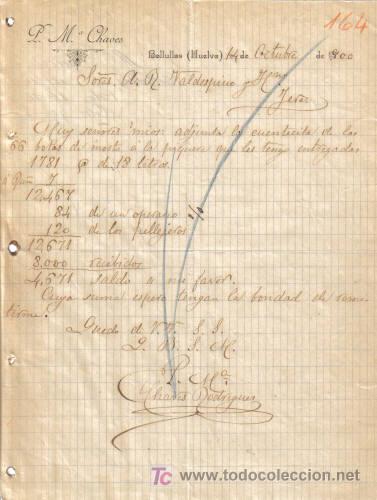 164
P. M.ª Chaves
Bollullos (Huelva) 14 de Octubre de 1900
Señs. A. R. Valdespino y Hno
Jerez
Muy señores mios: adjunta la cuentecita de las
66 botas de mosto á la piquera que les tengo entregadas
1781 @ de 18 litros.
á Rvn 7
12.467
84 de un operario
120 de los pellejeros
12,671
8.000 recibidos
4,671 saldo á mi favor.
Cuya suma espero tengan la bondad de remi
tirme.
Quedo de V.V. S. S.
Q. B. S. M.
P. Mª
Chaves Rodriguez
TC www.todocoleccion.net